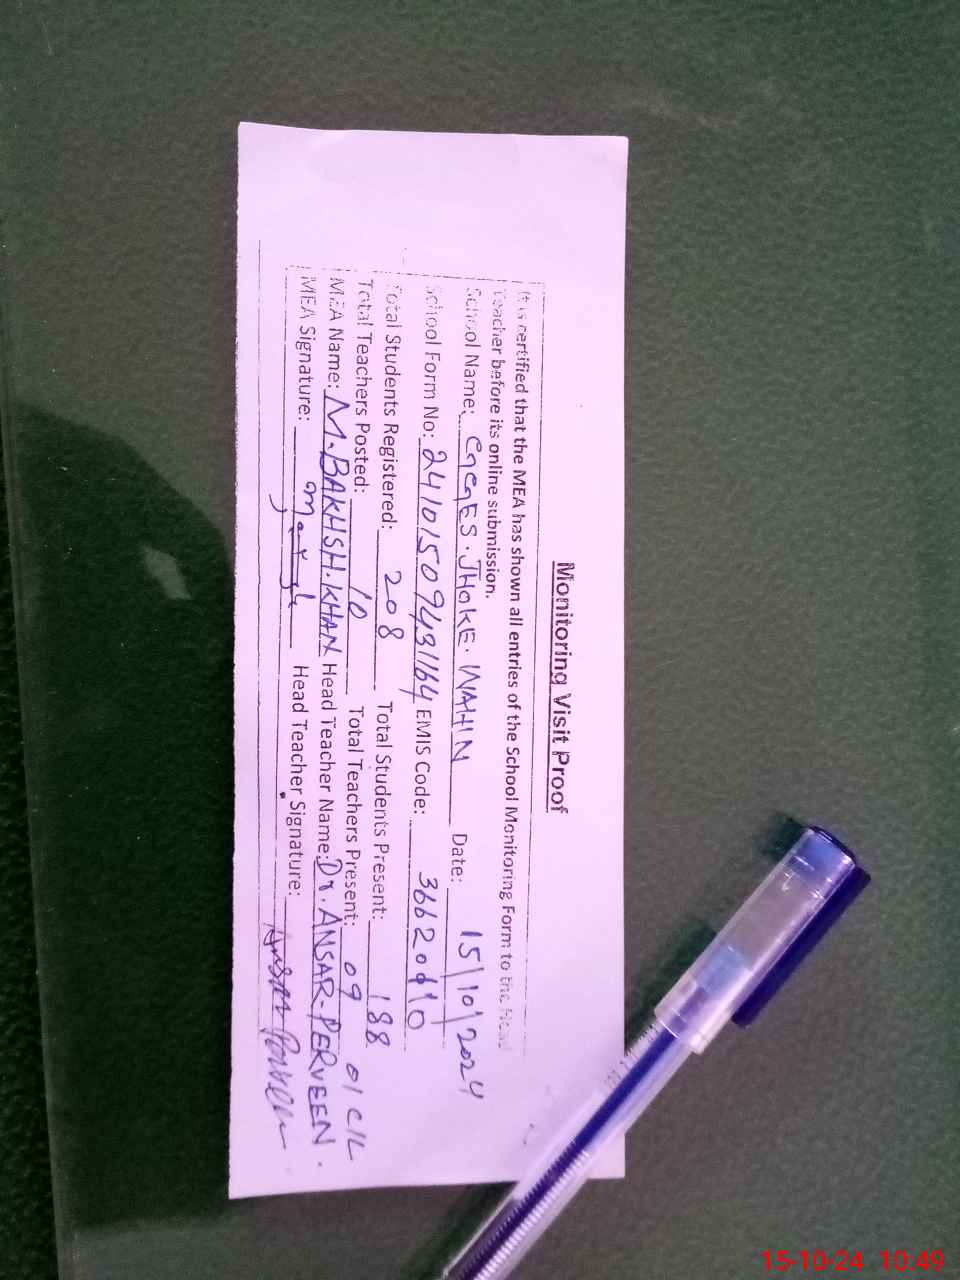 Monitoring Visit Proof
It is certified that the MEA has shown all entries of the School Monitoring Form to the Head
Teacher before its online submission.
School Name: GGES. JHOKE. WAHIN Date: 15/10/2024
School Form No: 24101509431164 EMIS Code: 36620
Total Students Registered: 208 Total Students Present: 188
Total Teachers Posted: 10 Total Teachers Present: 09 01 C/L
MEA Name: M. BAKHSH. KHAN Head Teacher Name: Dr. ANSAR. PERVEEN.
MEA Signature: Head Teacher Signature: Ansar Perveen
15-10-24 10:49